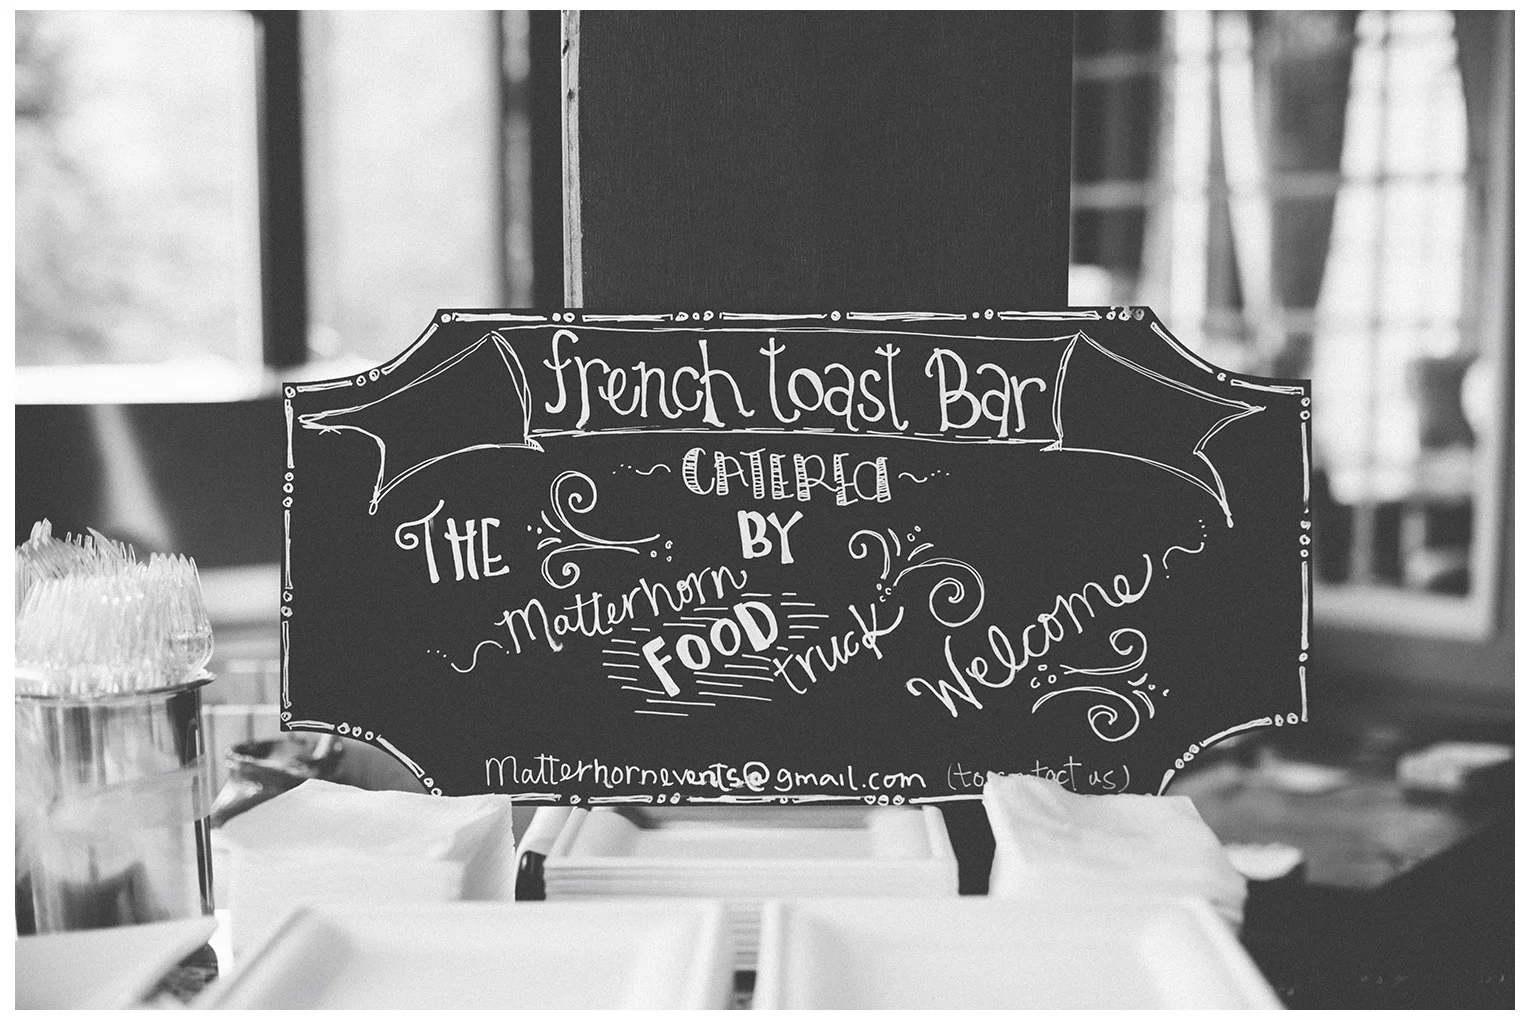 french toast Bar
CATERED
BY
THE
Matterhorn
FOOD
truck
Welcome
Matterhornevents@gmail.com (to contact us)